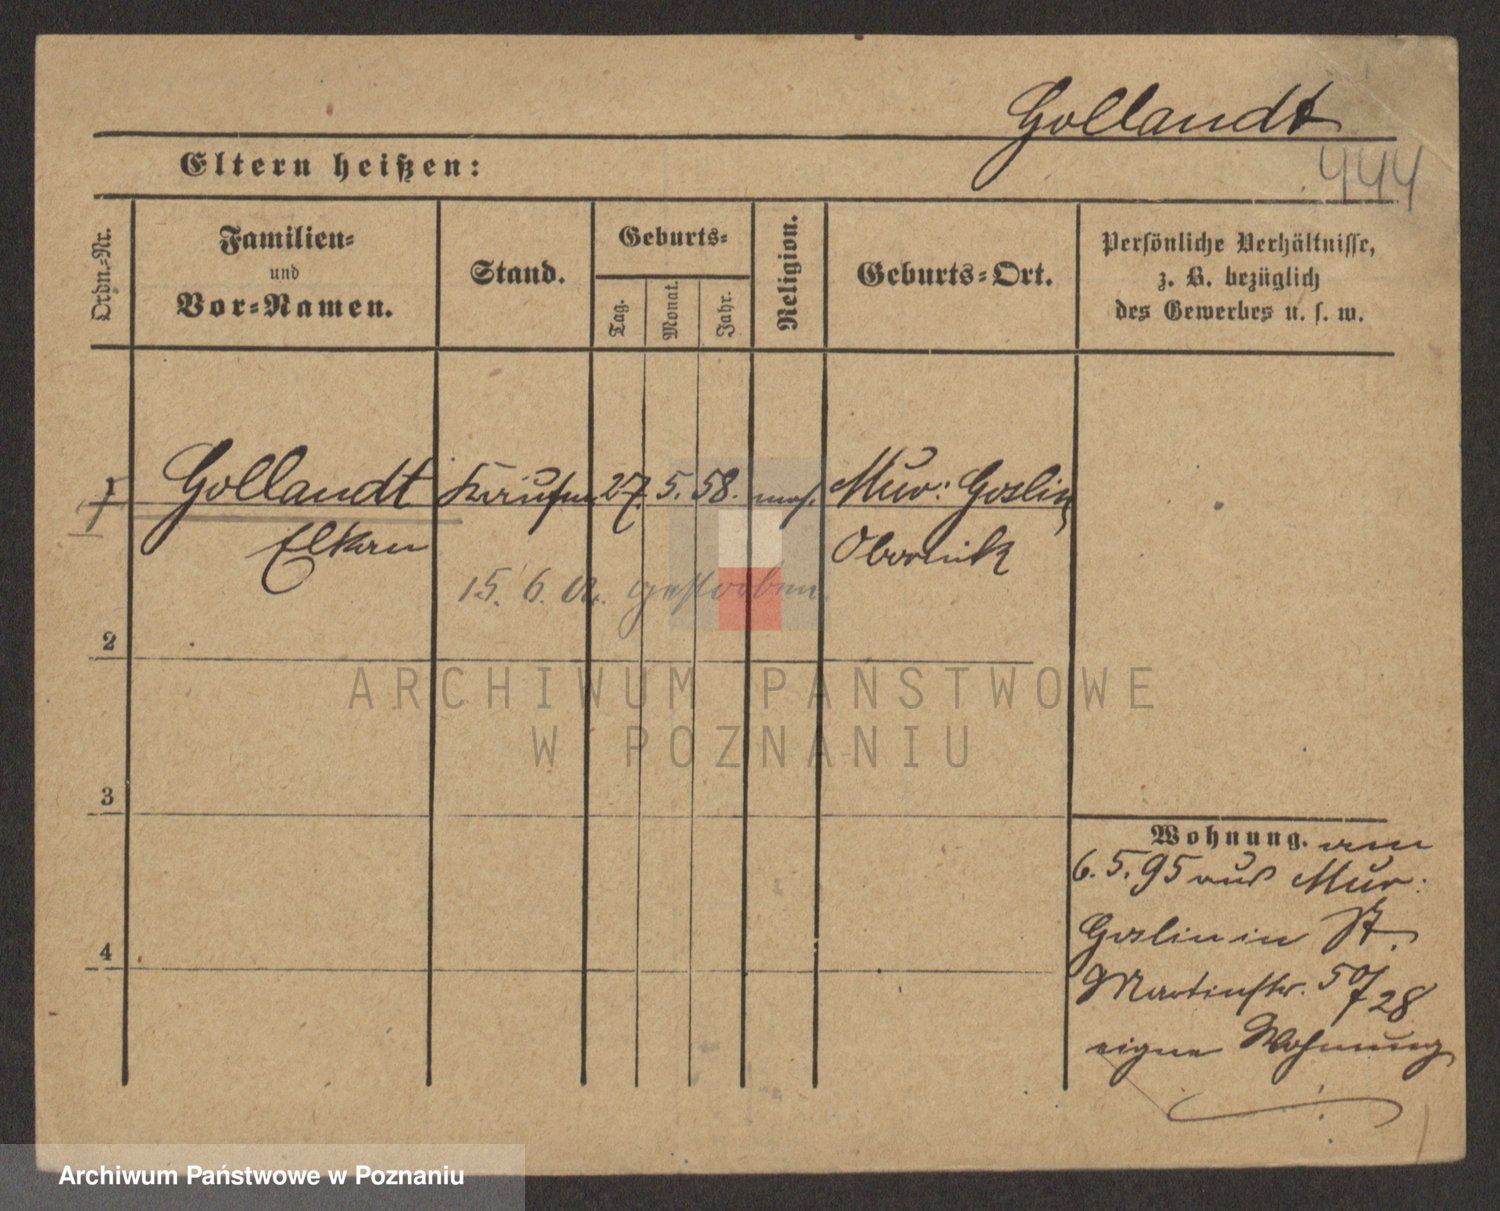 Gollandt
444
Eltern heißen:
Ordn.-Nr.
Familien-
und
Vor-Namen.
Stand.
Geburts-
Tag.
Monat.
Jahr.
Religion.
Geburts-Ort.
Persönliche Verhältnisse,
z. B. bezüglich
des Gewerbes u. s. w.
1
Gollandt Kaufm 27. 5. 58. mos. Mur: Goslin
Elkan Obornik
15. 6. 02. gestorben.
2
3
4
Wohnung. am
6. 5. 95 aus Mur:
Goslin in St.
Martinstr. 50/28
eigne Wohnung
ARCHIWUM PAŃSTWOWE
W POZNANIU
Archiwum Państwowe w Poznaniu